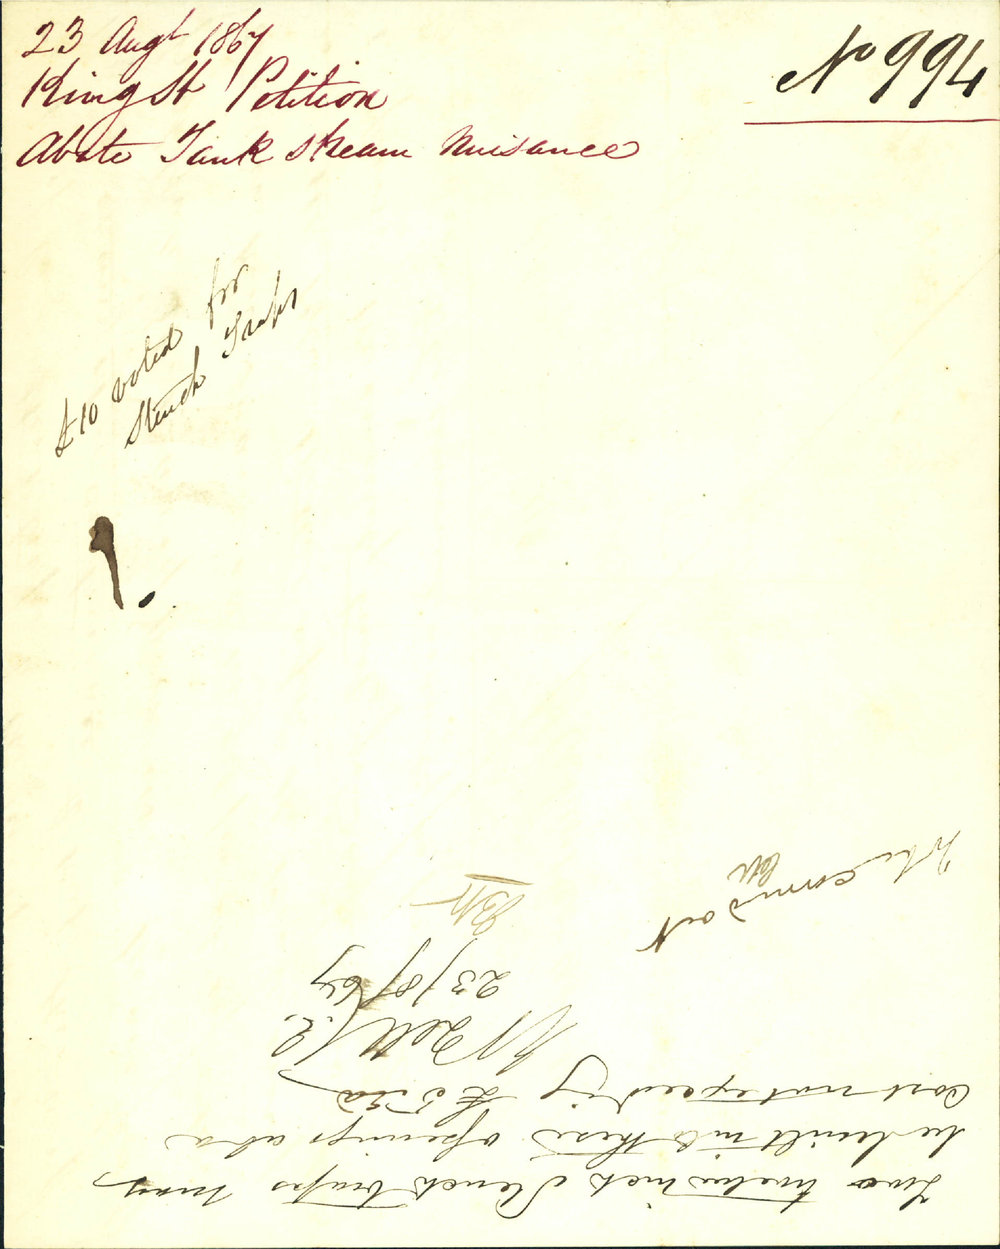 23 Augt 1867
King St Petition
Abate Tank Stream Nuisance
No 994
£10 voted for
Stench Traps
Two twelve inch Stench traps may
be built into these openings at a
cost not exceeding £5 
W Bell C.E.
23/8/67